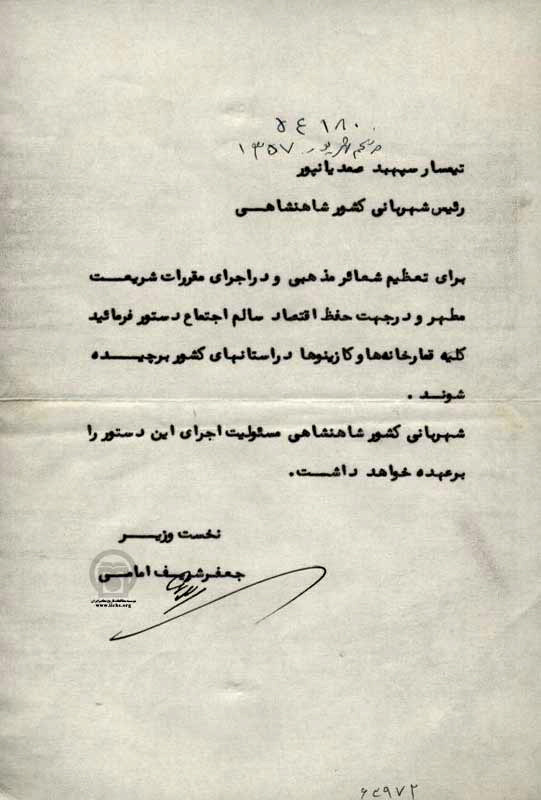 ۵۴۱۸۰
پنجم شهریور ۱۳۵۷
تیمسار سپهبد صمدیانپور
رئیس شهربانی کشور شاهنشاهی
برای تعظیم شعائر مذهبی و در اجرای مقررات شریعت
مطهر و در جهت حفظ اقتصاد سالم اجتماع دستور فرمائید
کلیه قمارخانه‌ها و کازینوها در استانهای کشور برچیده
شوند .
شهربانی کشور شاهنشاهی مسئولیت اجرای این دستور را
برعهده خواهد داشت.
نخست وزیر
جعفر شریف امامی
www.iichs.org